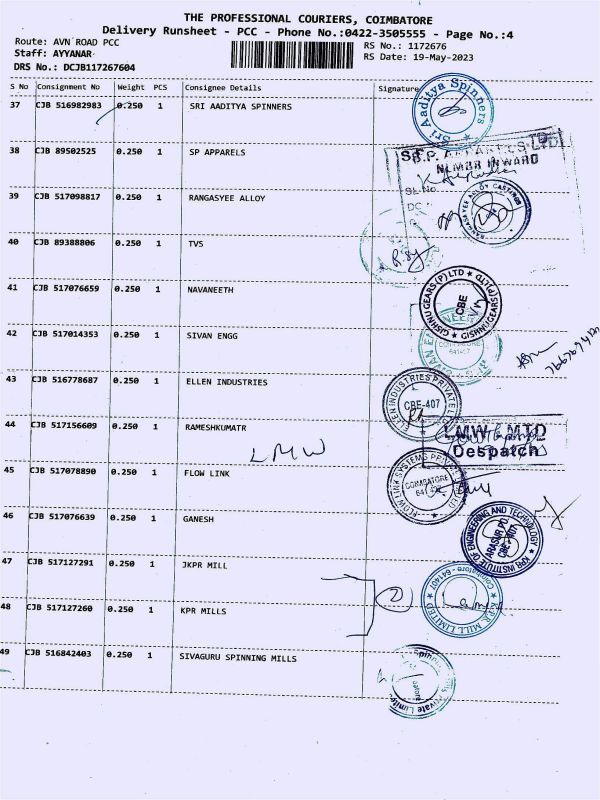 THE PROFESSIONAL COURIERS, COIMBATORE
Delivery Runsheet - PCC - Phone No.:0422-3505555 - Page No.:4
Route: AVN ROAD PCC
RS No.: 1172676
Staff: AYYANAR
RS Date: 19-May-2023
DRS No.: DCJB117267604
S No Consignment No Weight PCS Consignee Details Signature
37 CJB 516982983 0.250 1 SRI AADITYA SPINNERS
Sri Aaditya Spinners
38 CJB 89502525 0.250 1 SP APPARELS
INWARD
39 CJB 517098817 0.250 1 RANGASYEE ALLOY
RANGASYEE ALLOY CASTINGS
40 CJB 89388806 0.250 1 TVS
41 CJB 517076659 0.250 1 NAVANEETH
GISHNU GEARS (P) LTD
CBE
42 CJB 517014353 0.250 1 SIVAN ENGG
43 CJB 516778687 0.250 1 ELLEN INDUSTRIES
ELLEN INDUSTRIES PRIVATE
CBE-407
44 CJB 517156609 0.250 1 RAMESHKUMATR
LMW
LMW LMTD
Despatch
45 CJB 517078890 0.250 1 FLOW LINK
FLOW LINK SYSTEMS PRIVATE
COIMBATORE
46 CJB 517076639 0.250 1 GANESH
KPR INSTITUTE OF ENGINEERING AND TECHNOLOGY
ARASUR PO
CBE-407
47 CJB 517127291 0.250 1 JKPR MILL
2
KPR MILL LIMITED
Coimbatore - 641407
48 CJB 517127260 0.250 1 KPR MILLS
49 CJB 516842403 0.250 1 SIVAGURU SPINNING MILLS